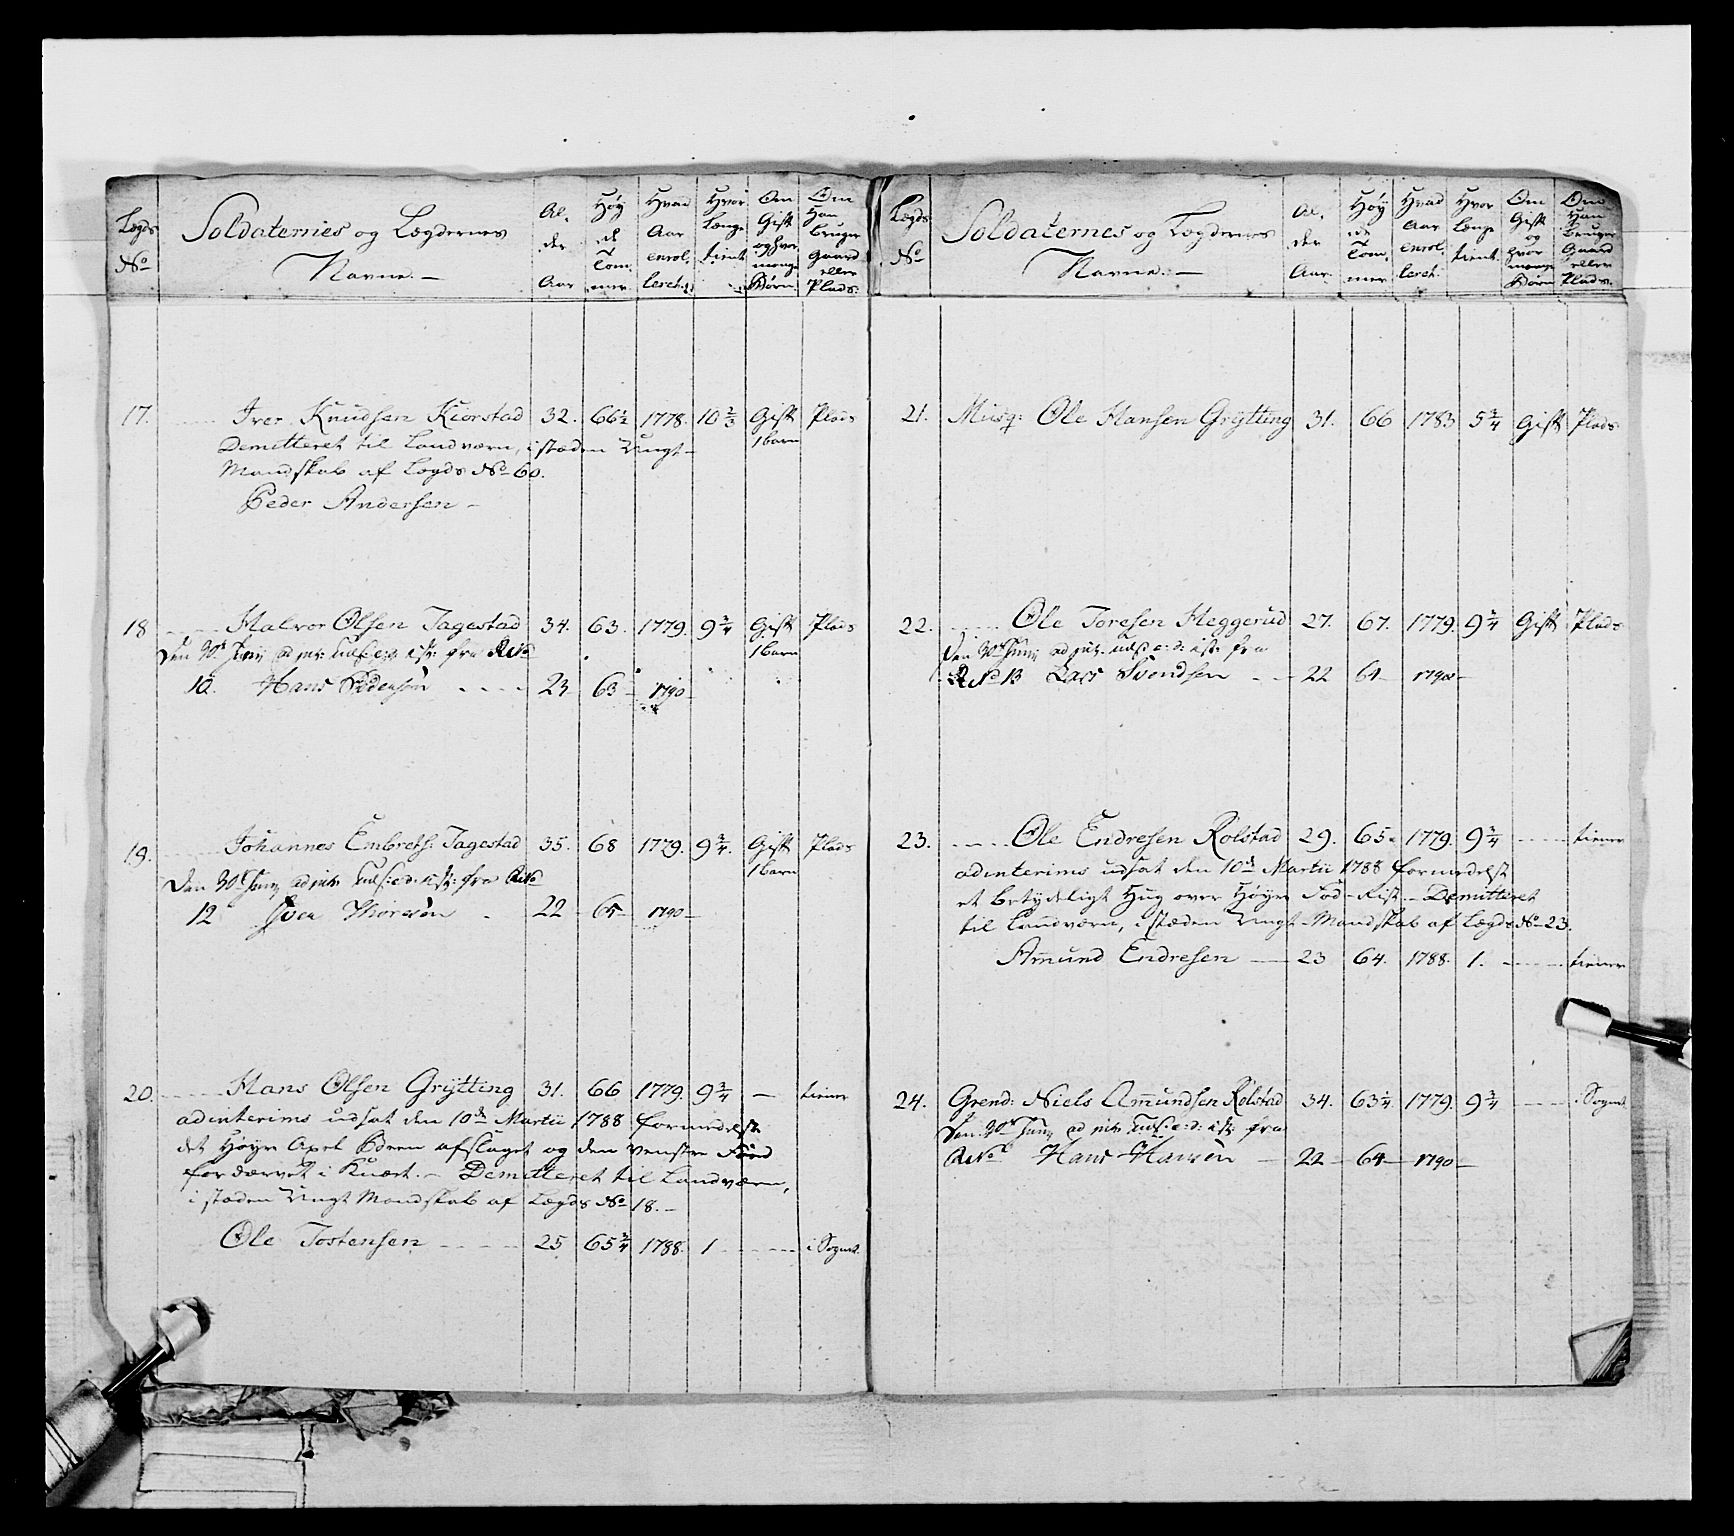 Lægds No
Soldaternes og Lægdernes Navne. –
Al- der Aar
Høy de Tom- mer
Hvad Aar enrol- leret.
Hvor Længe tient
Om Gift og hvor mange Børn.
Om Han bruger Gaard eller Plads.
17. Iver Knudsen Kiorstad 32. 66½ 1778. 10 2/3 Gift 1 barn Plads
Demitteret til Landværn, i stæden Ungt
Mandskab af Lægds No 60.
Peder Andersen –
18 Halvor Olsen Tagestad 34. 63. 1779. 9¾ Gift 1 Barn Plads
Den 30te Junij ad int: uds: e: d: ist: fra R No
10. Hans Pedersøn 23 63 – 1790 –
19. Johannes Embrets: Tagestad 35. 68 1779. 9¾. Gift 1 Barn Plads
Den 30te Junij ad int: uds: e: d: ist: fra R No
12 Sven Thoresøn 22 – 65 – 1790 –
20. Hans Olsen Grÿtting 31. 66 1779. 9¾ – tiener
adinterims udsat den 10de Martii 1788 formedelst
det Høyre Axel Been afslaget og den venstre Food
fordærvet i Knæet. – Demitteret til Landværn,
i stæden Ungt Mandskab af Lægds No 18. –
Ole Tostensen 25 65¾ 1788. 1 i Sognet
Lægds No
Soldaternes og Lægdernes Navne. –
Al- der Aar.
Høy de Tom- mer
Hvad Aar enrol- leret.
Hvor længe tient.
Om Gift og hvor mange Børn
Om Han Bruger Gaard eller Plads.
21. Musq: Ole Hansen Grÿtting 31. 66 1783 5¾ Gift Plads
22. Ole Toresen Heggerud 27. 67. 1779. 9¾ Gift Plads
Den 30te Junij ad int. uds: e: d: ist: fra
R No 13 Lars Svendsen 22 64 – 1790 –
23. Ole Endresen Rolstad 29. 65. 1779. 9¾ tiener
adinterims udsat den 10de Martii 1788 formedelst
et betydeligt Hug over Høyre Fod-Rist. – Demitteret
til Landværn, i stæden Ungt Mandskab af Lægds No 23.
Amund Endresen 23 64. 1788. 1. tiener
24. Grend: Niels Amundsen Rolstad 34. 63¼ 1779. 9¾ i Sognet
Den 30te Junij ad int: uds: e: d: ist: fra
R No Hans Hansøn – 22 – 64 – 1790 –